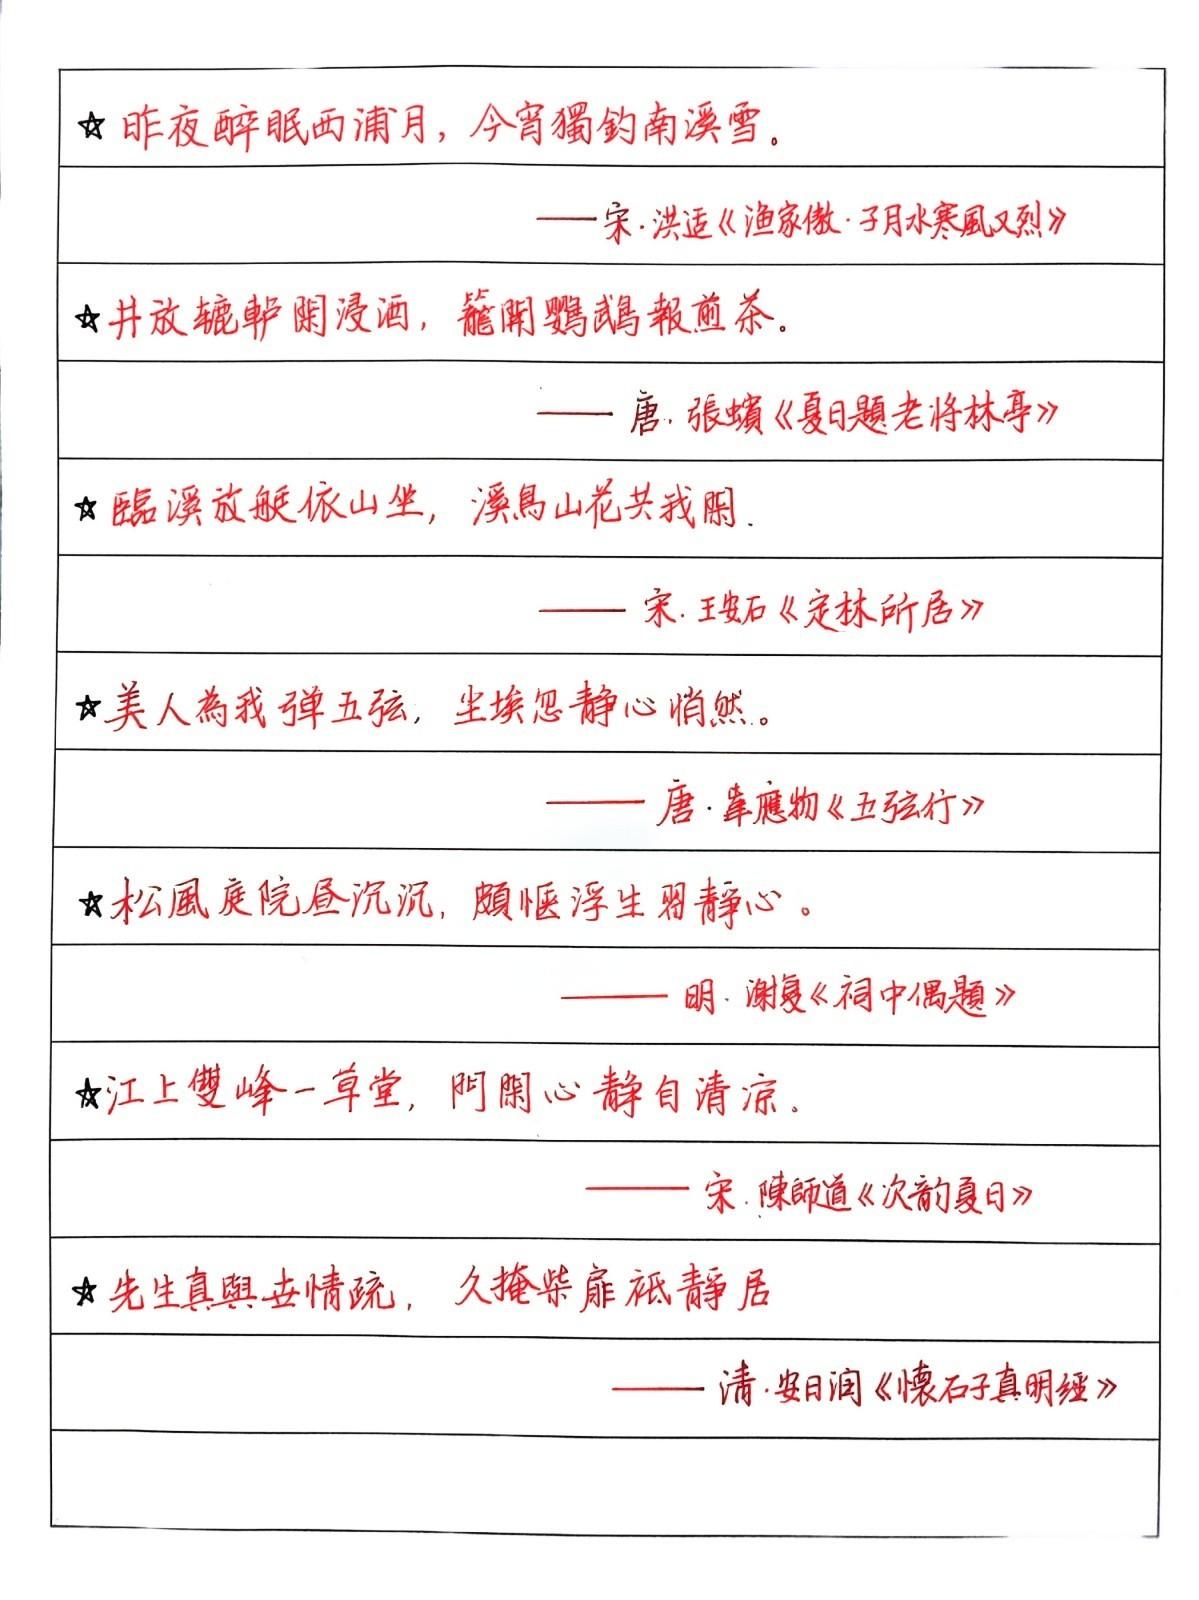 ☆昨夜醉眠西浦月，今宵獨釣南溪雪。
——宋·洪适《渔家傲·子月水寒風又烈》
☆井放辘轳閑浸酒，籠開鹦鵡報煎茶。
——唐·張蠙《夏日題老将林亭》
☆臨溪放艇依山坐，溪鳥山花共我閑.
——宋·王安石《定林所居》
☆美人為我弹五弦，坐埃忽静心悄然。
——唐·韋應物《五弦行》
☆松風庭院昼沉沉，頗惬浮生習靜心。
——明·謝复《祠中偶題》
☆江上雙峰一草堂，門閑心静自清凉.
——宋·陳師道《次韵夏日》
☆先生真與世情疏，久掩柴扉祗靜居
——清·安日润《懷石子真明經》